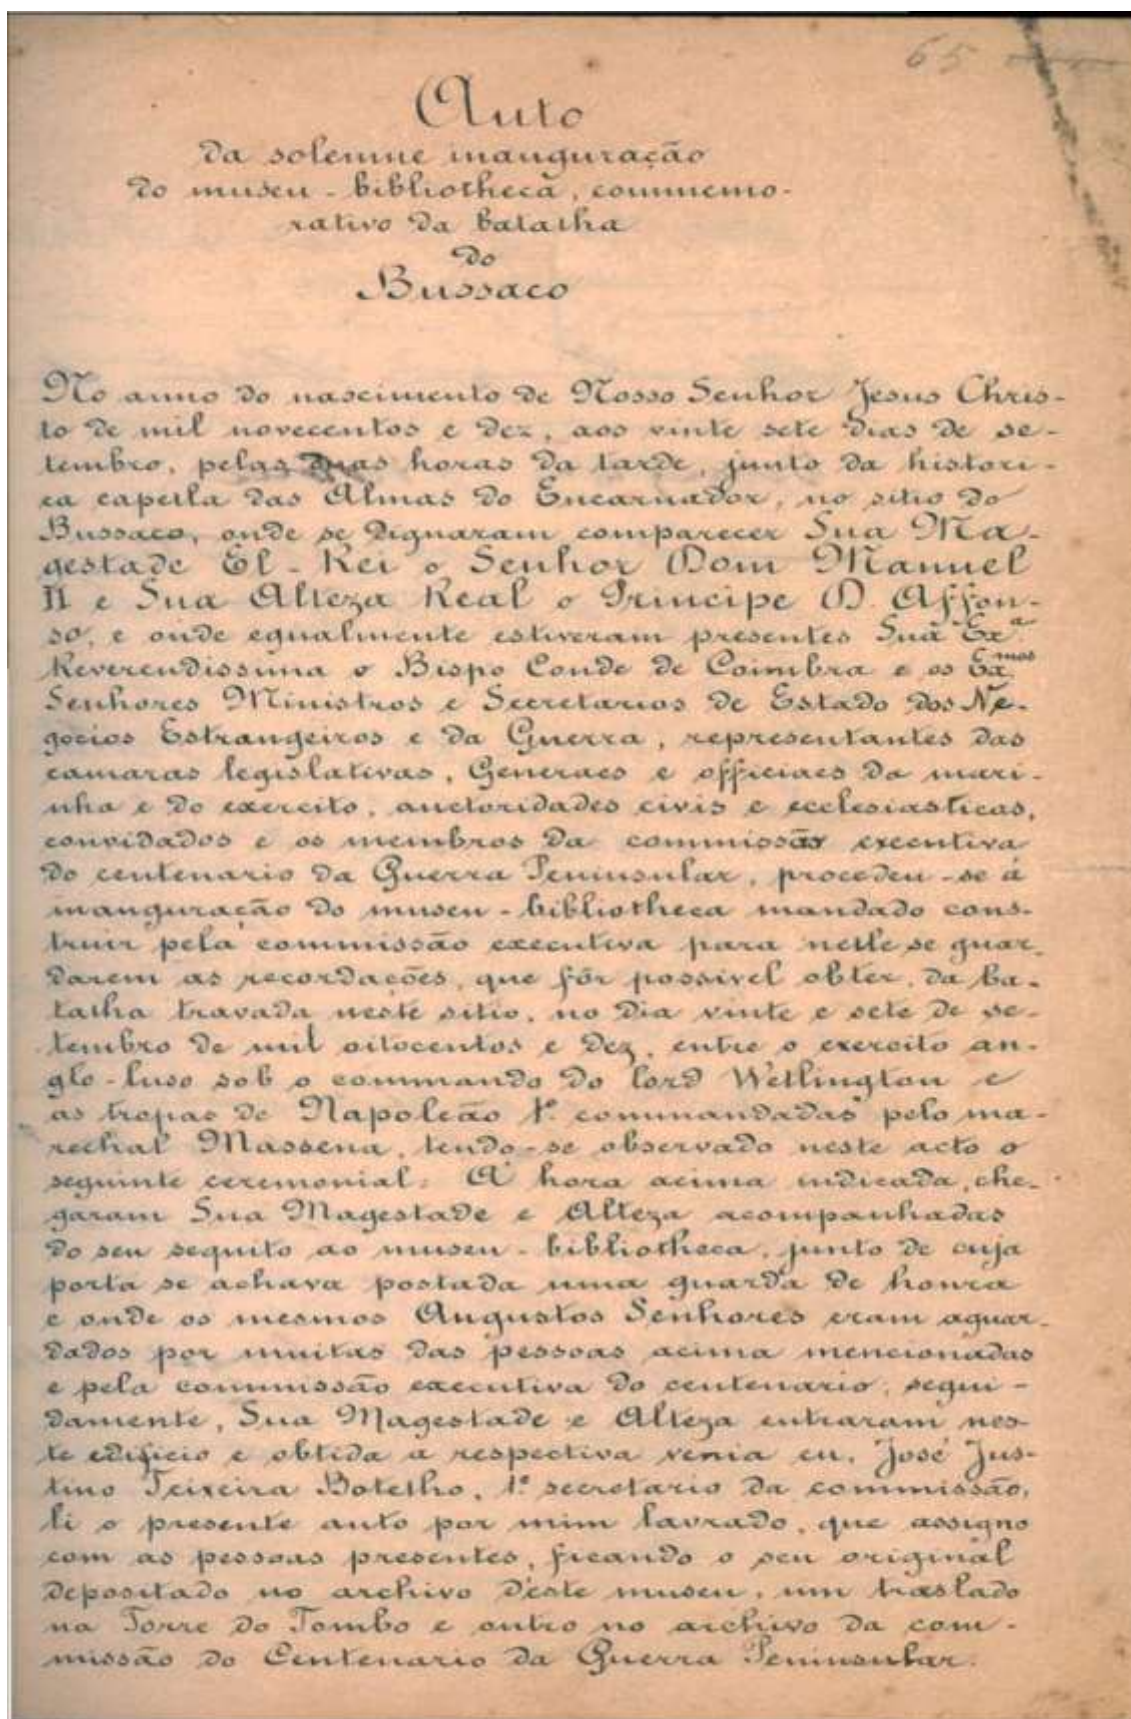 65
Auto
da solemne inauguração
do museu-bibliotheca, commemo-
rativo da batalha
do
Bussaco
No anno do nascimento de Nosso Senhor Jesus Chris-
to de mil novecentos e dez, aos vinte sete dias de se-
tembro, pelas duas horas da tarde, junto da histori-
ca capella das Almas do Encarnador, no sitio do
Bussaco, onde se dignaram comparecer Sua Ma-
gestade El-Rei o Senhor Dom Manuel
II e Sua Alteza Real o Principe D. Affon-
so, e onde egualmente estiveram presentes Sua Exª
Reverendissima o Bispo Conde de Coimbra e os Exmos
Senhores Ministros e Secretarios de Estado dos Ne-
gocios Estrangeiros e da Guerra, representantes das
camaras legislativas, Generaes e officiaes da mari-
nha e do exercito, auctoridades civis e ecclesiasticas,
convidados e os membros da commissão executiva
do centenario da Guerra Peninsular, procedeu-se á
inauguração do museu-bibliotheca mandado cons-
truir pela commissão executiva para nelle se guar-
darem as recordações, que fôr possivel obter, da ba-
talha travada neste sitio, no dia vinte e sete de se-
tembro de mil oitocentos e dez, entre o exercito an-
glo-luso sob o commando do lord Wellington e
as tropas de Napoleão 1º commandadas pelo ma-
rechal Massena, tendo-se observado neste acto o
seguinte ceremonial: Á hora acima indicada, che-
garam Sua Magestade e Alteza acompanhadas
do seu sequito ao museu-bibliotheca, junto de cuja
porta se achava postada uma guarda de honra
e onde os mesmos Augustos Senhores eram aguar-
dados por muitas das pessoas acima mencionadas
e pela commissão executiva do centenario; segui-
damente, Sua Magestade e Alteza entraram nes-
te edificio e obtida a respectiva venia eu, José Jus-
tino Teixeira Botelho, 1º secretario da commissão,
li o presente auto por mim lavrado, que assigno
com as pessoas presentes, ficando o seu original
depositado no archivo d'este museu, um traslado
na Torre do Tombo e outro no archivo da com-
missão do Centenario da Guerra Peninsular.